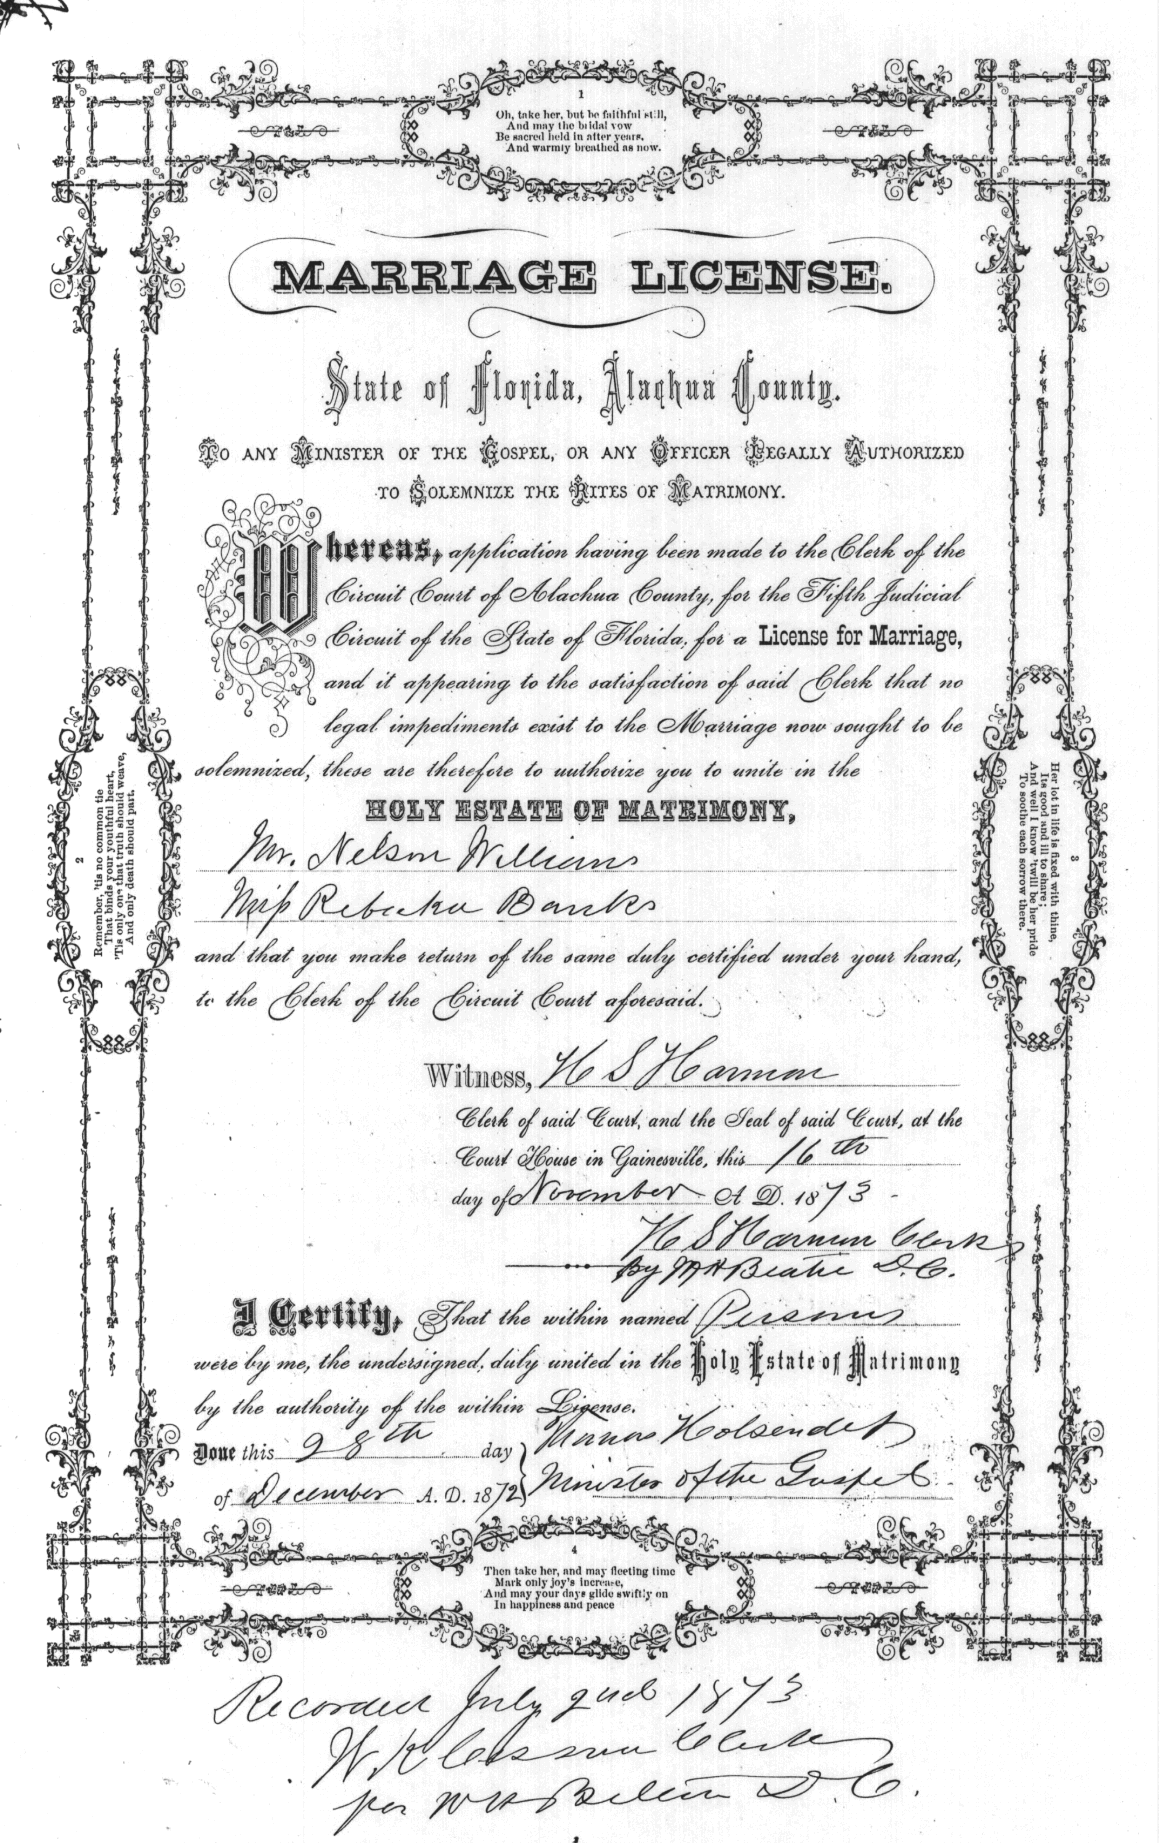 1
Oh, take her, but be faithful still,
And may the bridal vow
Be sacred held in after years,
And warmly breathed as now.
MARRIAGE LICENSE.
State of Florida, Alachua County.
TO ANY MINISTER OF THE GOSPEL, OR ANY OFFICER LEGALLY AUTHORIZED
TO SOLEMNIZE THE RITES OF MATRIMONY.
Whereas, application having been made to the Clerk of the
Circuit Court of Alachua County, for the Fifth Judicial
Circuit of the State of Florida, for a License for Marriage,
and it appearing to the satisfaction of said Clerk that no
legal impediments exist to the Marriage now sought to be
solemnized, these are therefore to authorize you to unite in the
HOLY ESTATE OF MATRIMONY,
Mr. Nelson Williams
Miss Rebecka Banks
and that you make return of the same duly certified under your hand,
to the Clerk of the Circuit Court aforesaid.
2
Remember, 'tis no common tie
That binds your youthful heart,
'Tis only one that truth should weave,
And only death should part.
3
Her lot in life is fixed with thine,
Its good and ill to share;
And well I know 'twill be her pride
To soothe each sorrow there.
Witness, H S Harmon
Clerk of said Court, and the Seal of said Court, at the
Court House in Gainesville, this 16th
day of November A D. 1873
H S Harmon Clerk
By Beatie D.C.
I Certify, That the within named Persons
were by me, the undersigned, duly united in the Holy Estate of Matrimony
by the authority of the within License.
Done this 28th day
of December A. D. 1872
Holsendolf
Minister of the Gospel
4
Then take her, and may fleeting time
Mark only joy's increase,
And may your days glide swiftly on
In happiness and peace
Recorded July 2nd 1873
W K Cessna Clerk
per D. C.